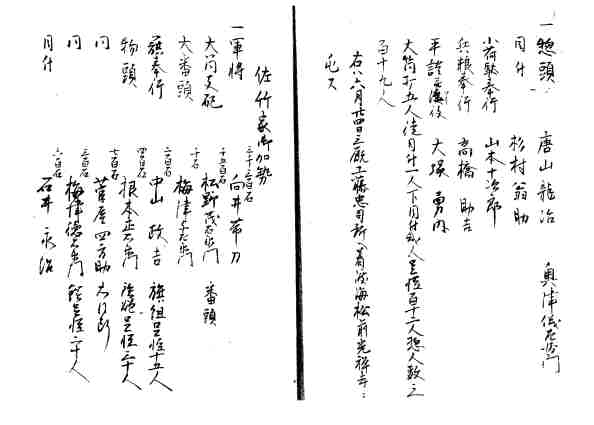 一惣頭　唐山龍治　奥津儀左衛門
目付　杉村翁助
小荷駄奉行　山本十次郎
兵粮奉行　高橋助吉
大塚勇内
大筒打五人徒目付一人下目付弐人足軽百十二人惣人数
百十九人
右ハ六月廿四日三厩工藤忠司 渡海松前光禅寺
屯ス
佐竹家御加勢
一軍将　三千三百石　向井帯刀
大筒支配　千五百石　松野茂右衛門　番頭
大番頭　千石　梅津千右衛門
旗奉行　三百石　中山政吉　旗組足軽十五人
物頭　四百石　根本正右衛門　足軽二十人
同　七百石　菅屋四方助
同　三百石　梅津徳右衛門　足軽二十人
目付　六百石　石井永治